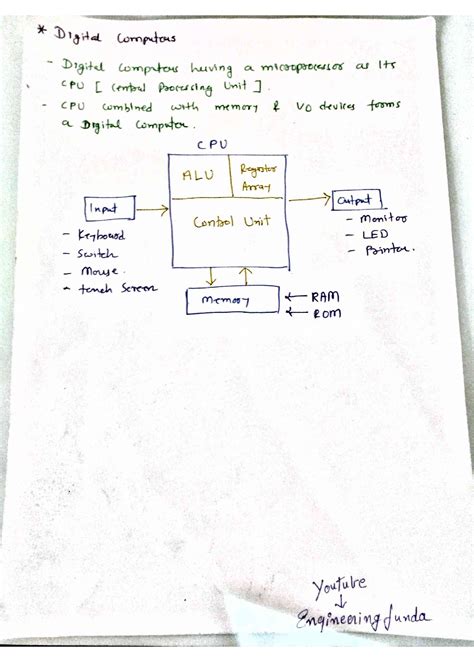 * Digital Computers
- Digital Computers having a microprocessor as Its
CPU [ Central Processing Unit ].
- CPU combined with memory & I/O devices forms
a Digital Computer.
CPU
ALU
Register
Array
Input
Control Unit
Output
- Keyboard
- Switch
- Mouse.
- touch Screen
- Monitor
- LED
- Printer.
Memory
← RAM
← ROM
Youtube
↓
Engineering funda